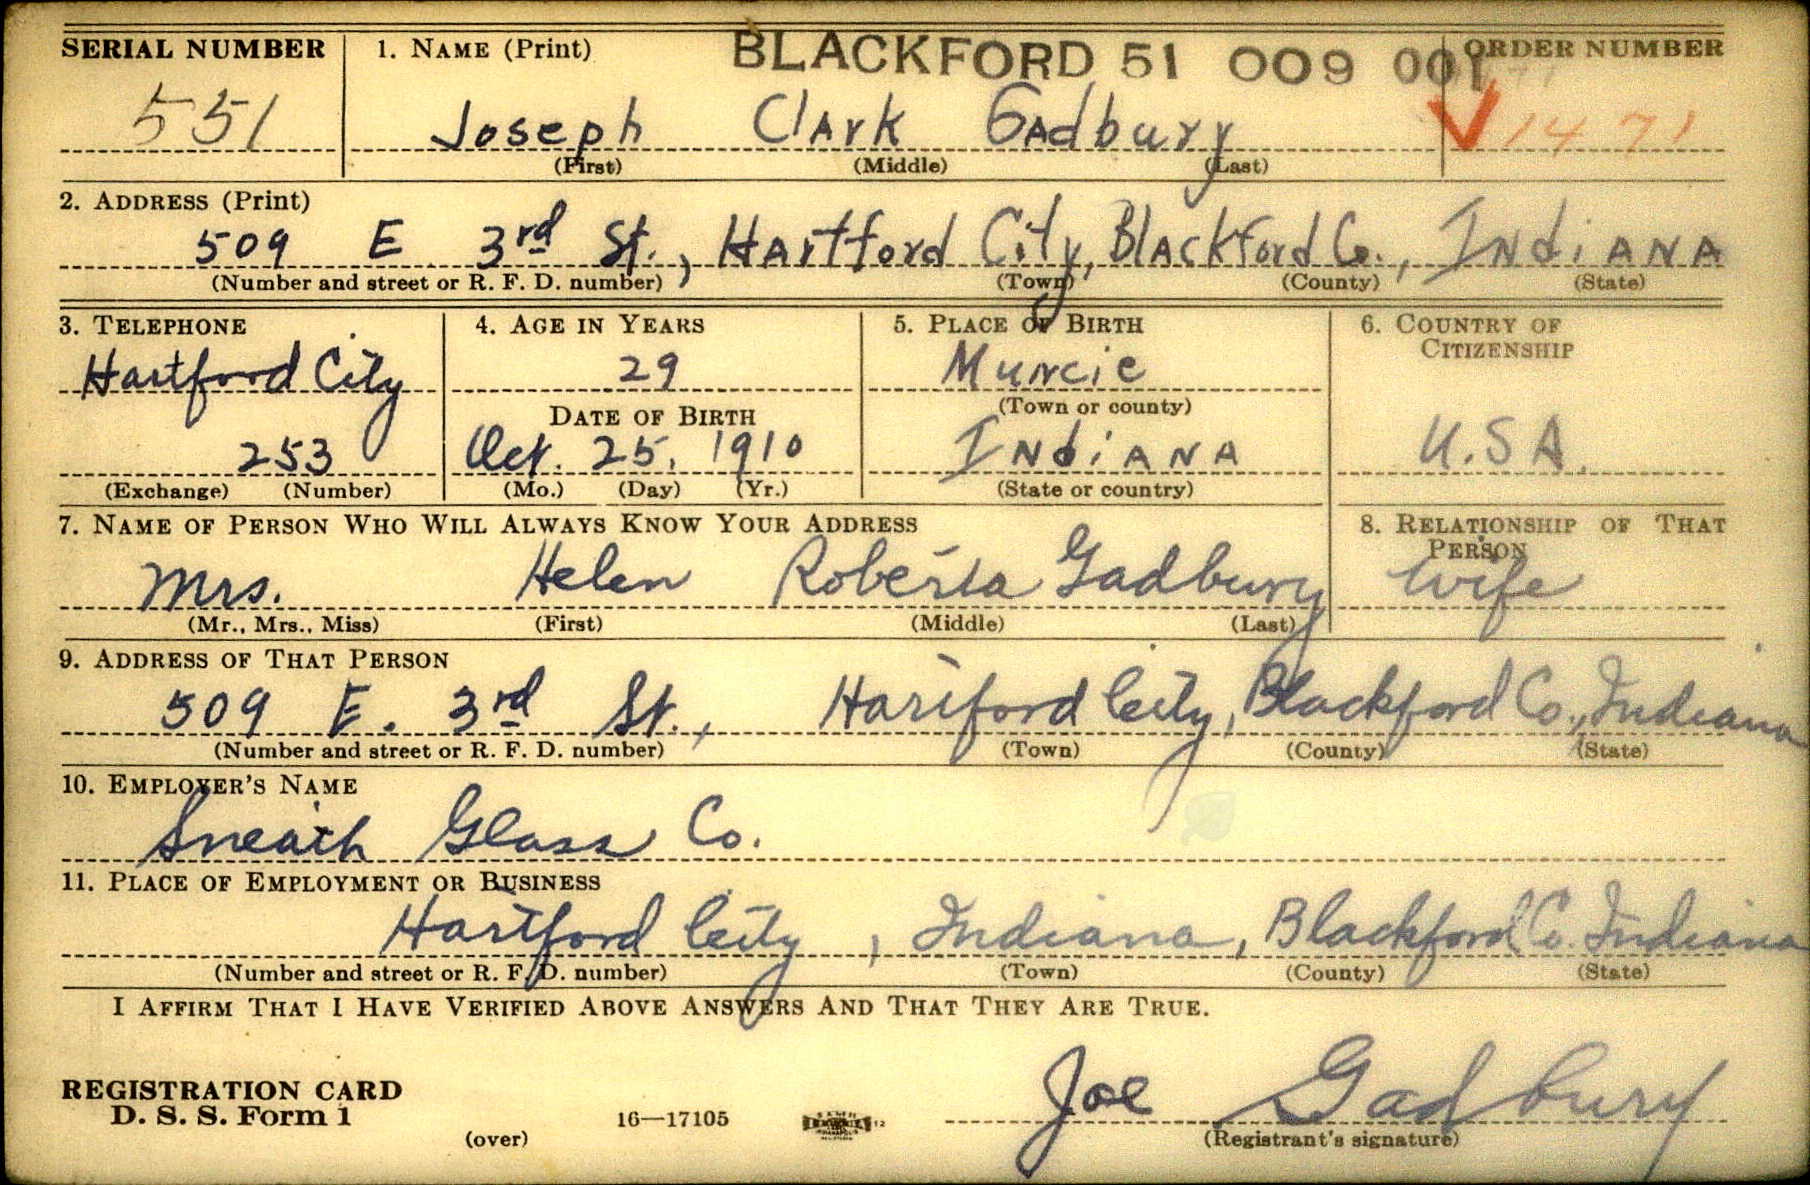 SERIAL NUMBER 1. NAME (Print) BLACKFORD 51 009 001 ORDER NUMBER
551 Joseph Clark Gadbury 1471
(First) (Middle) (Last)
2. ADDRESS (Print)
509 E 3rd St., Hartford City, Blackford Co., INdiANA
(Number and street or R. F. D. number) (Town) (County) (State)
3. TELEPHONE 4. AGE IN YEARS 5. PLACE OF BIRTH 6. COUNTRY OF CITIZENSHIP
Hartford City 29 Muncie
DATE OF BIRTH (Town or county)
253 Oct. 25, 1910 INdiANA U.S.A.
(Exchange) (Number) (Mo.) (Day) (Yr.) (State or country)
7. NAME OF PERSON WHO WILL ALWAYS KNOW YOUR ADDRESS 8. RELATIONSHIP OF THAT PERSON
Mrs. Helen Roberta Gadbury Wife
(Mr., Mrs., Miss) (First) (Middle) (Last)
9. ADDRESS OF THAT PERSON
509 E. 3rd St., Hartford City, Blackford Co., Indiana
(Number and street or R. F. D. number) (Town) (County) (State)
10. EMPLOYER'S NAME
Sneath Glass Co.
11. PLACE OF EMPLOYMENT OR BUSINESS
Hartford City, Indiana, Blackford Co. Indiana
(Number and street or R. F. D. number) (Town) (County) (State)
I AFFIRM THAT I HAVE VERIFIED ABOVE ANSWERS AND THAT THEY ARE TRUE.
REGISTRATION CARD Joe Gadbury
D. S. S. Form 1 16—17105
(over) (Registrant's signature)